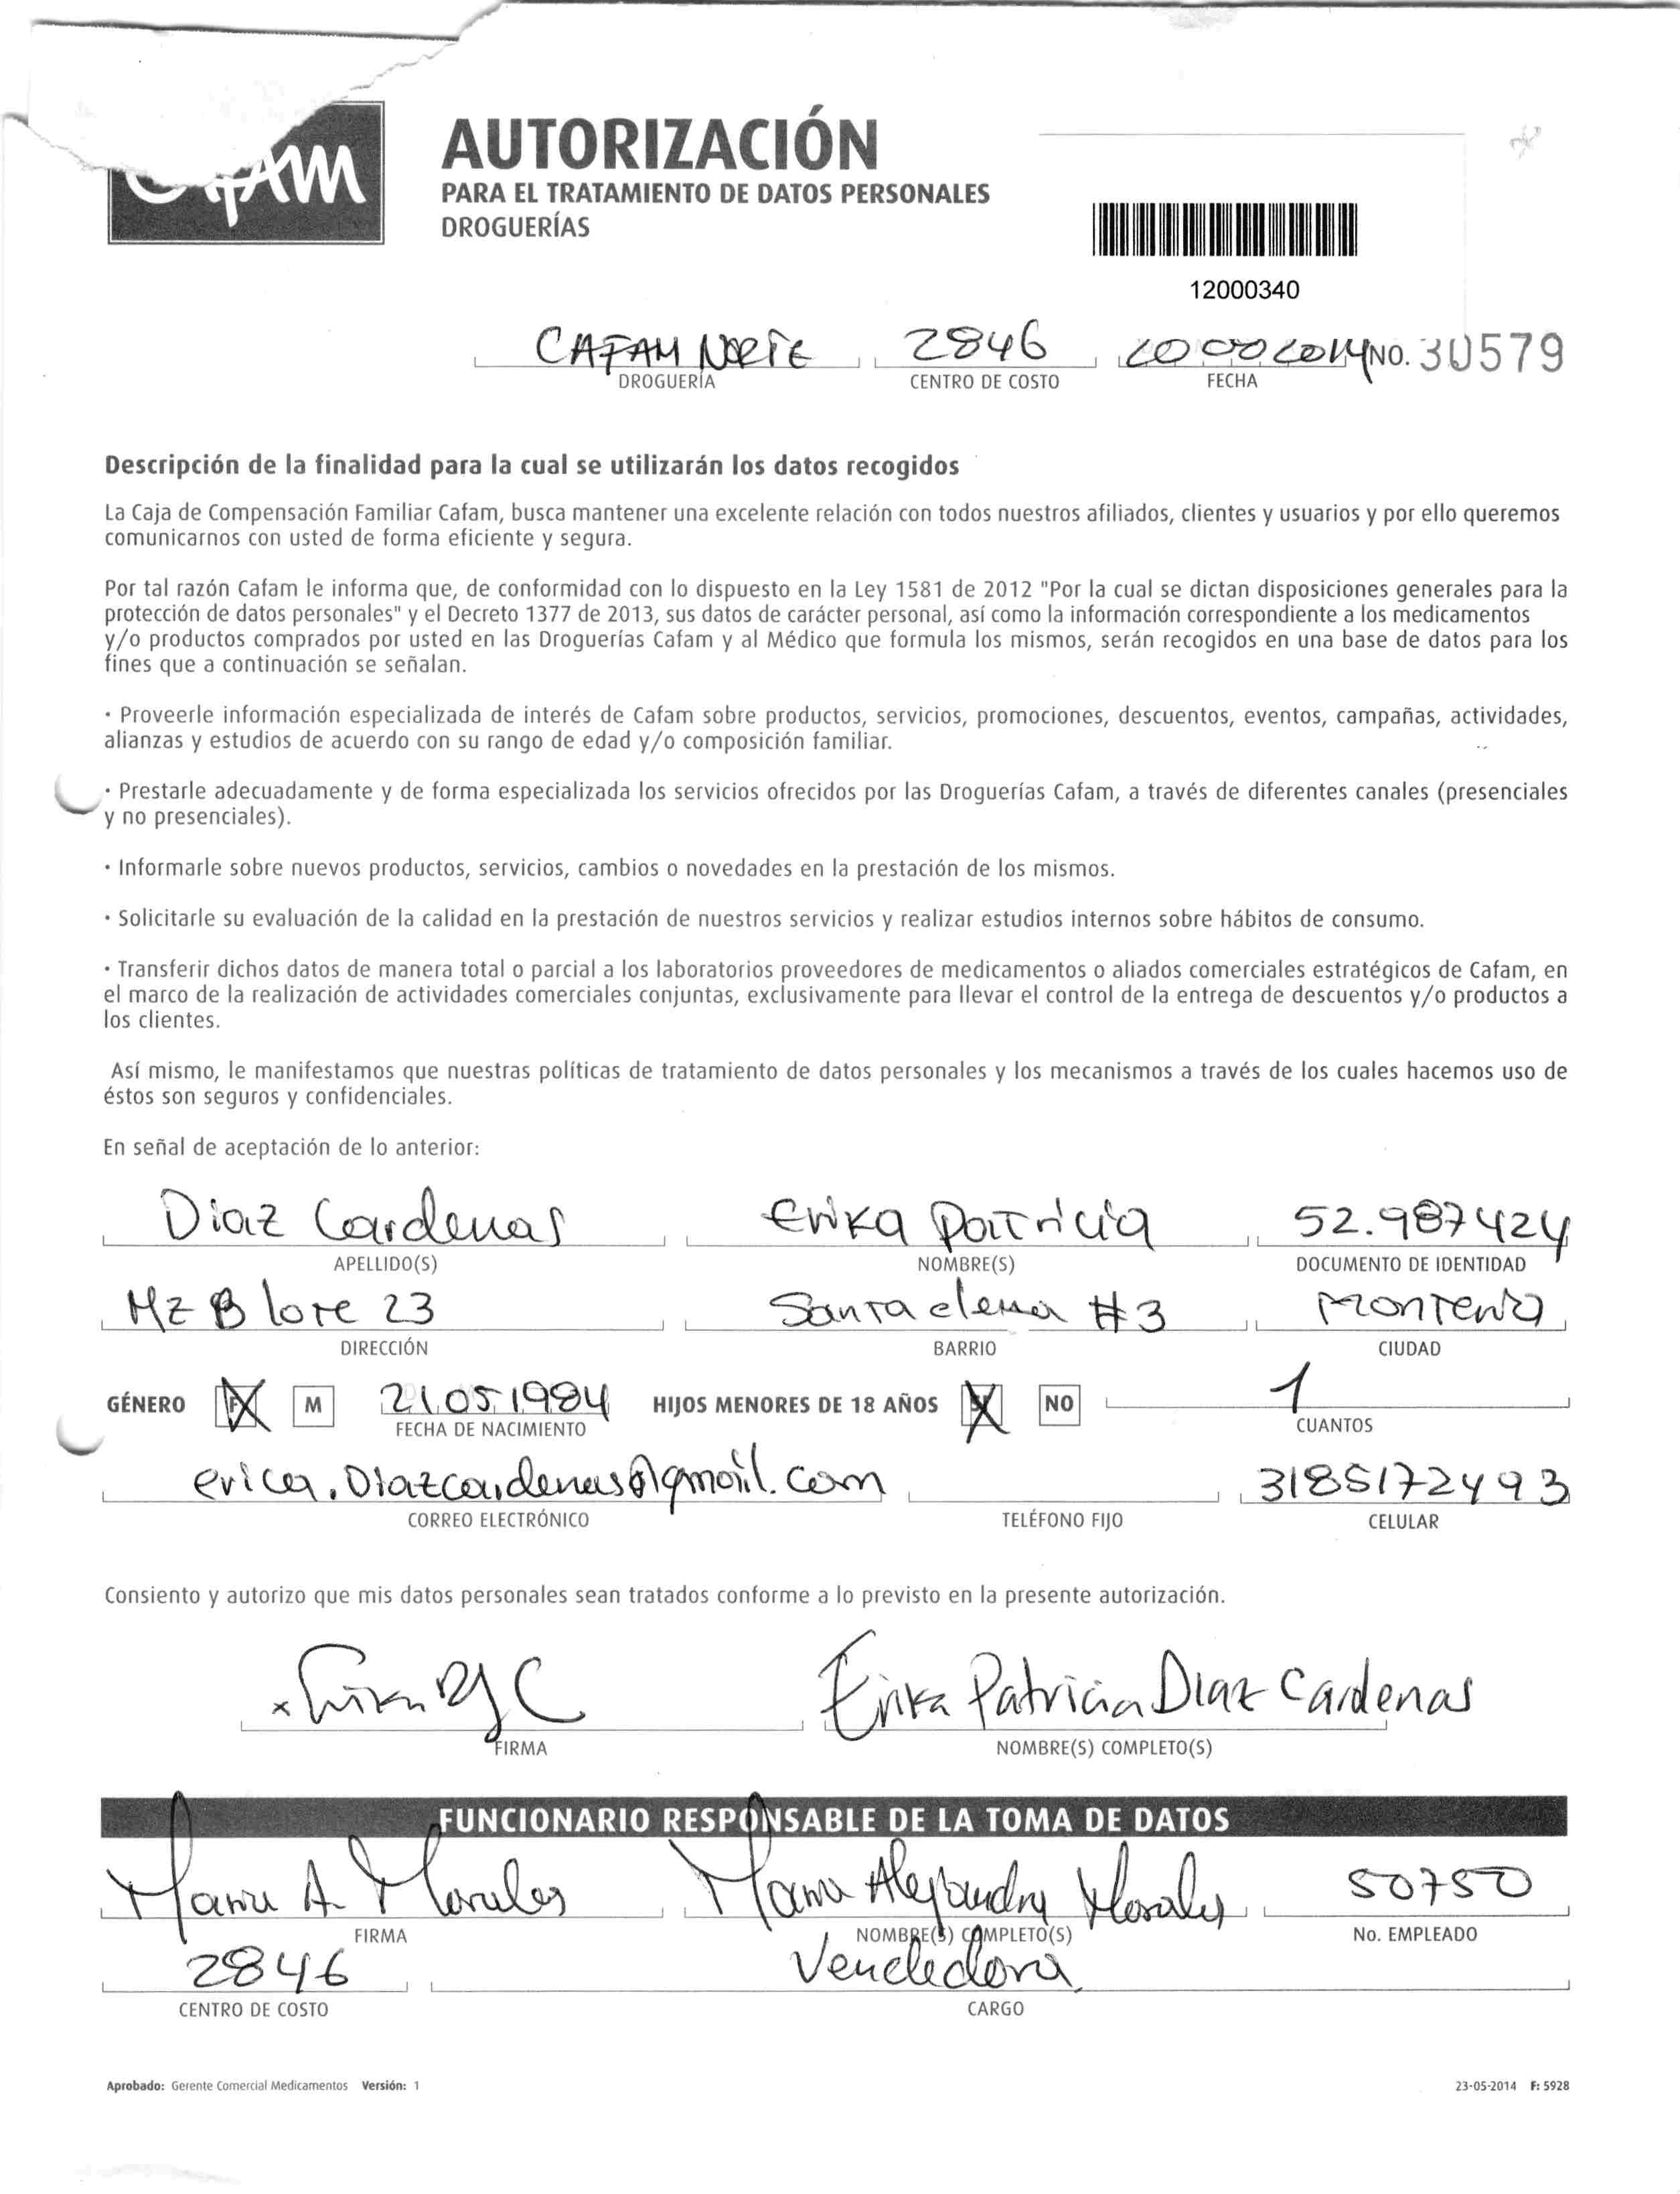 Cafam
AUTORIZACIÓN
PARA EL TRATAMIENTO DE DATOS PERSONALES
DROGUERÍAS
12000340
CAFAM NORTE 2846 NO. 30579
DROGUERÍA CENTRO DE COSTO FECHA
Descripción de la finalidad para la cual se utilizarán los datos recogidos
La Caja de Compensación Familiar Cafam, busca mantener una excelente relación con todos nuestros afiliados, clientes y usuarios y por ello queremos
comunicarnos con usted de forma eficiente y segura.
Por tal razón Cafam le informa que, de conformidad con lo dispuesto en la Ley 1581 de 2012 "Por la cual se dictan disposiciones generales para la
protección de datos personales" y el Decreto 1377 de 2013, sus datos de carácter personal, así como la información correspondiente a los medicamentos
y/o productos comprados por usted en las Droguerías Cafam y al Médico que formula los mismos, serán recogidos en una base de datos para los
fines que a continuación se señalan.
• Proveerle información especializada de interés de Cafam sobre productos, servicios, promociones, descuentos, eventos, campañas, actividades,
alianzas y estudios de acuerdo con su rango de edad y/o composición familiar.
• Prestarle adecuadamente y de forma especializada los servicios ofrecidos por las Droguerías Cafam, a través de diferentes canales (presenciales
y no presenciales).
• Informarle sobre nuevos productos, servicios, cambios o novedades en la prestación de los mismos.
• Solicitarle su evaluación de la calidad en la prestación de nuestros servicios y realizar estudios internos sobre hábitos de consumo.
• Transferir dichos datos de manera total o parcial a los laboratorios proveedores de medicamentos o aliados comerciales estratégicos de Cafam, en
el marco de la realización de actividades comerciales conjuntas, exclusivamente para llevar el control de la entrega de descuentos y/o productos a
los clientes.
Así mismo, le manifestamos que nuestras políticas de tratamiento de datos personales y los mecanismos a través de los cuales hacemos uso de
éstos son seguros y confidenciales.
En señal de aceptación de lo anterior:
Diaz Cardenas Erika Patricia 52.987424
APELLIDO(S) NOMBRE(S) DOCUMENTO DE IDENTIDAD
Mz B lote 23 Santa elena #3
DIRECCIÓN BARRIO CIUDAD
GÉNERO F M 21 05 1984 HIJOS MENORES DE 18 AÑOS NO 1
FECHA DE NACIMIENTO CUANTOS
erica.Diazcardenas@gmail.com 3185172493
CORREO ELECTRÓNICO TELÉFONO FIJO CELULAR
Consiento y autorizo que mis datos personales sean tratados conforme a lo previsto en la presente autorización.
Erika Patricia Diaz Cardenas
FIRMA NOMBRE(S) COMPLETO(S)
FUNCIONARIO RESPONSABLE DE LA TOMA DE DATOS
Maria A. Morales Maria Alejandra Morales 50750
FIRMA NOMBRE(S) COMPLETO(S) No. EMPLEADO
2846 Vendedora
CENTRO DE COSTO CARGO
Aprobado: Gerente Comercial Medicamentos Versión: 1 23-05-2014 F: 5928